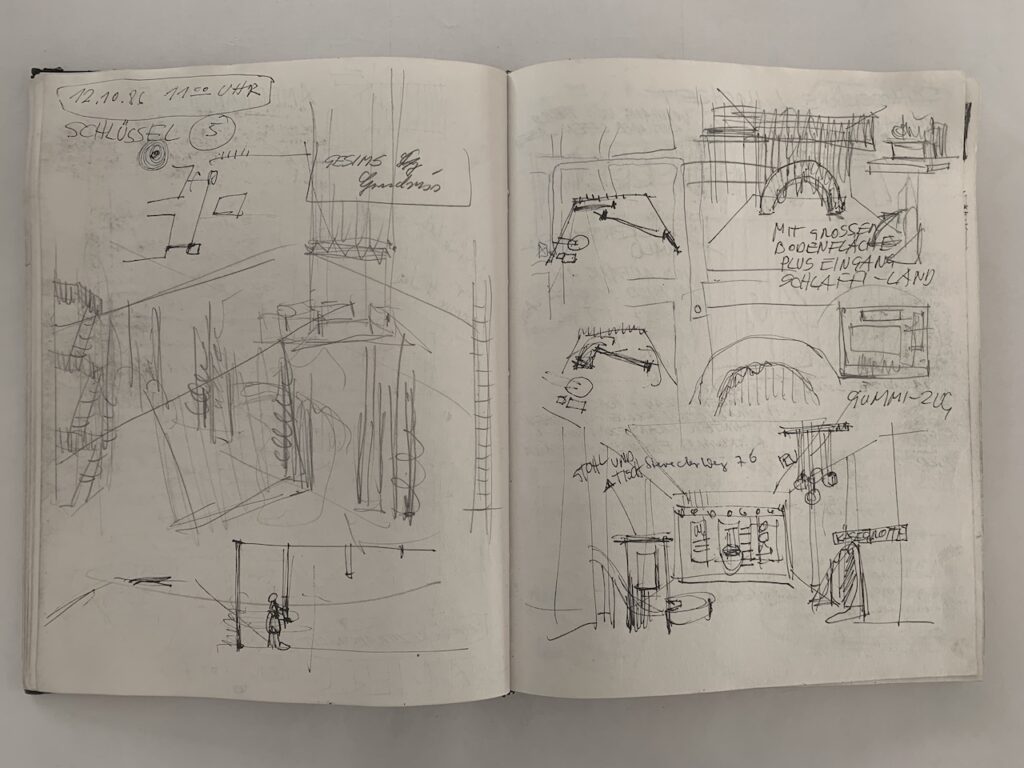 12.10.86 11⁰⁰ UHR
SCHLÜSSEL 5
GESIMS
Grundriss
MIT GROSSEN
BODENFLÄCHE
PLUS EINGANG
SCHLAFFI-LAND
GUMMI-ZUG
STUHL UND
76
KÄSEGROTTE